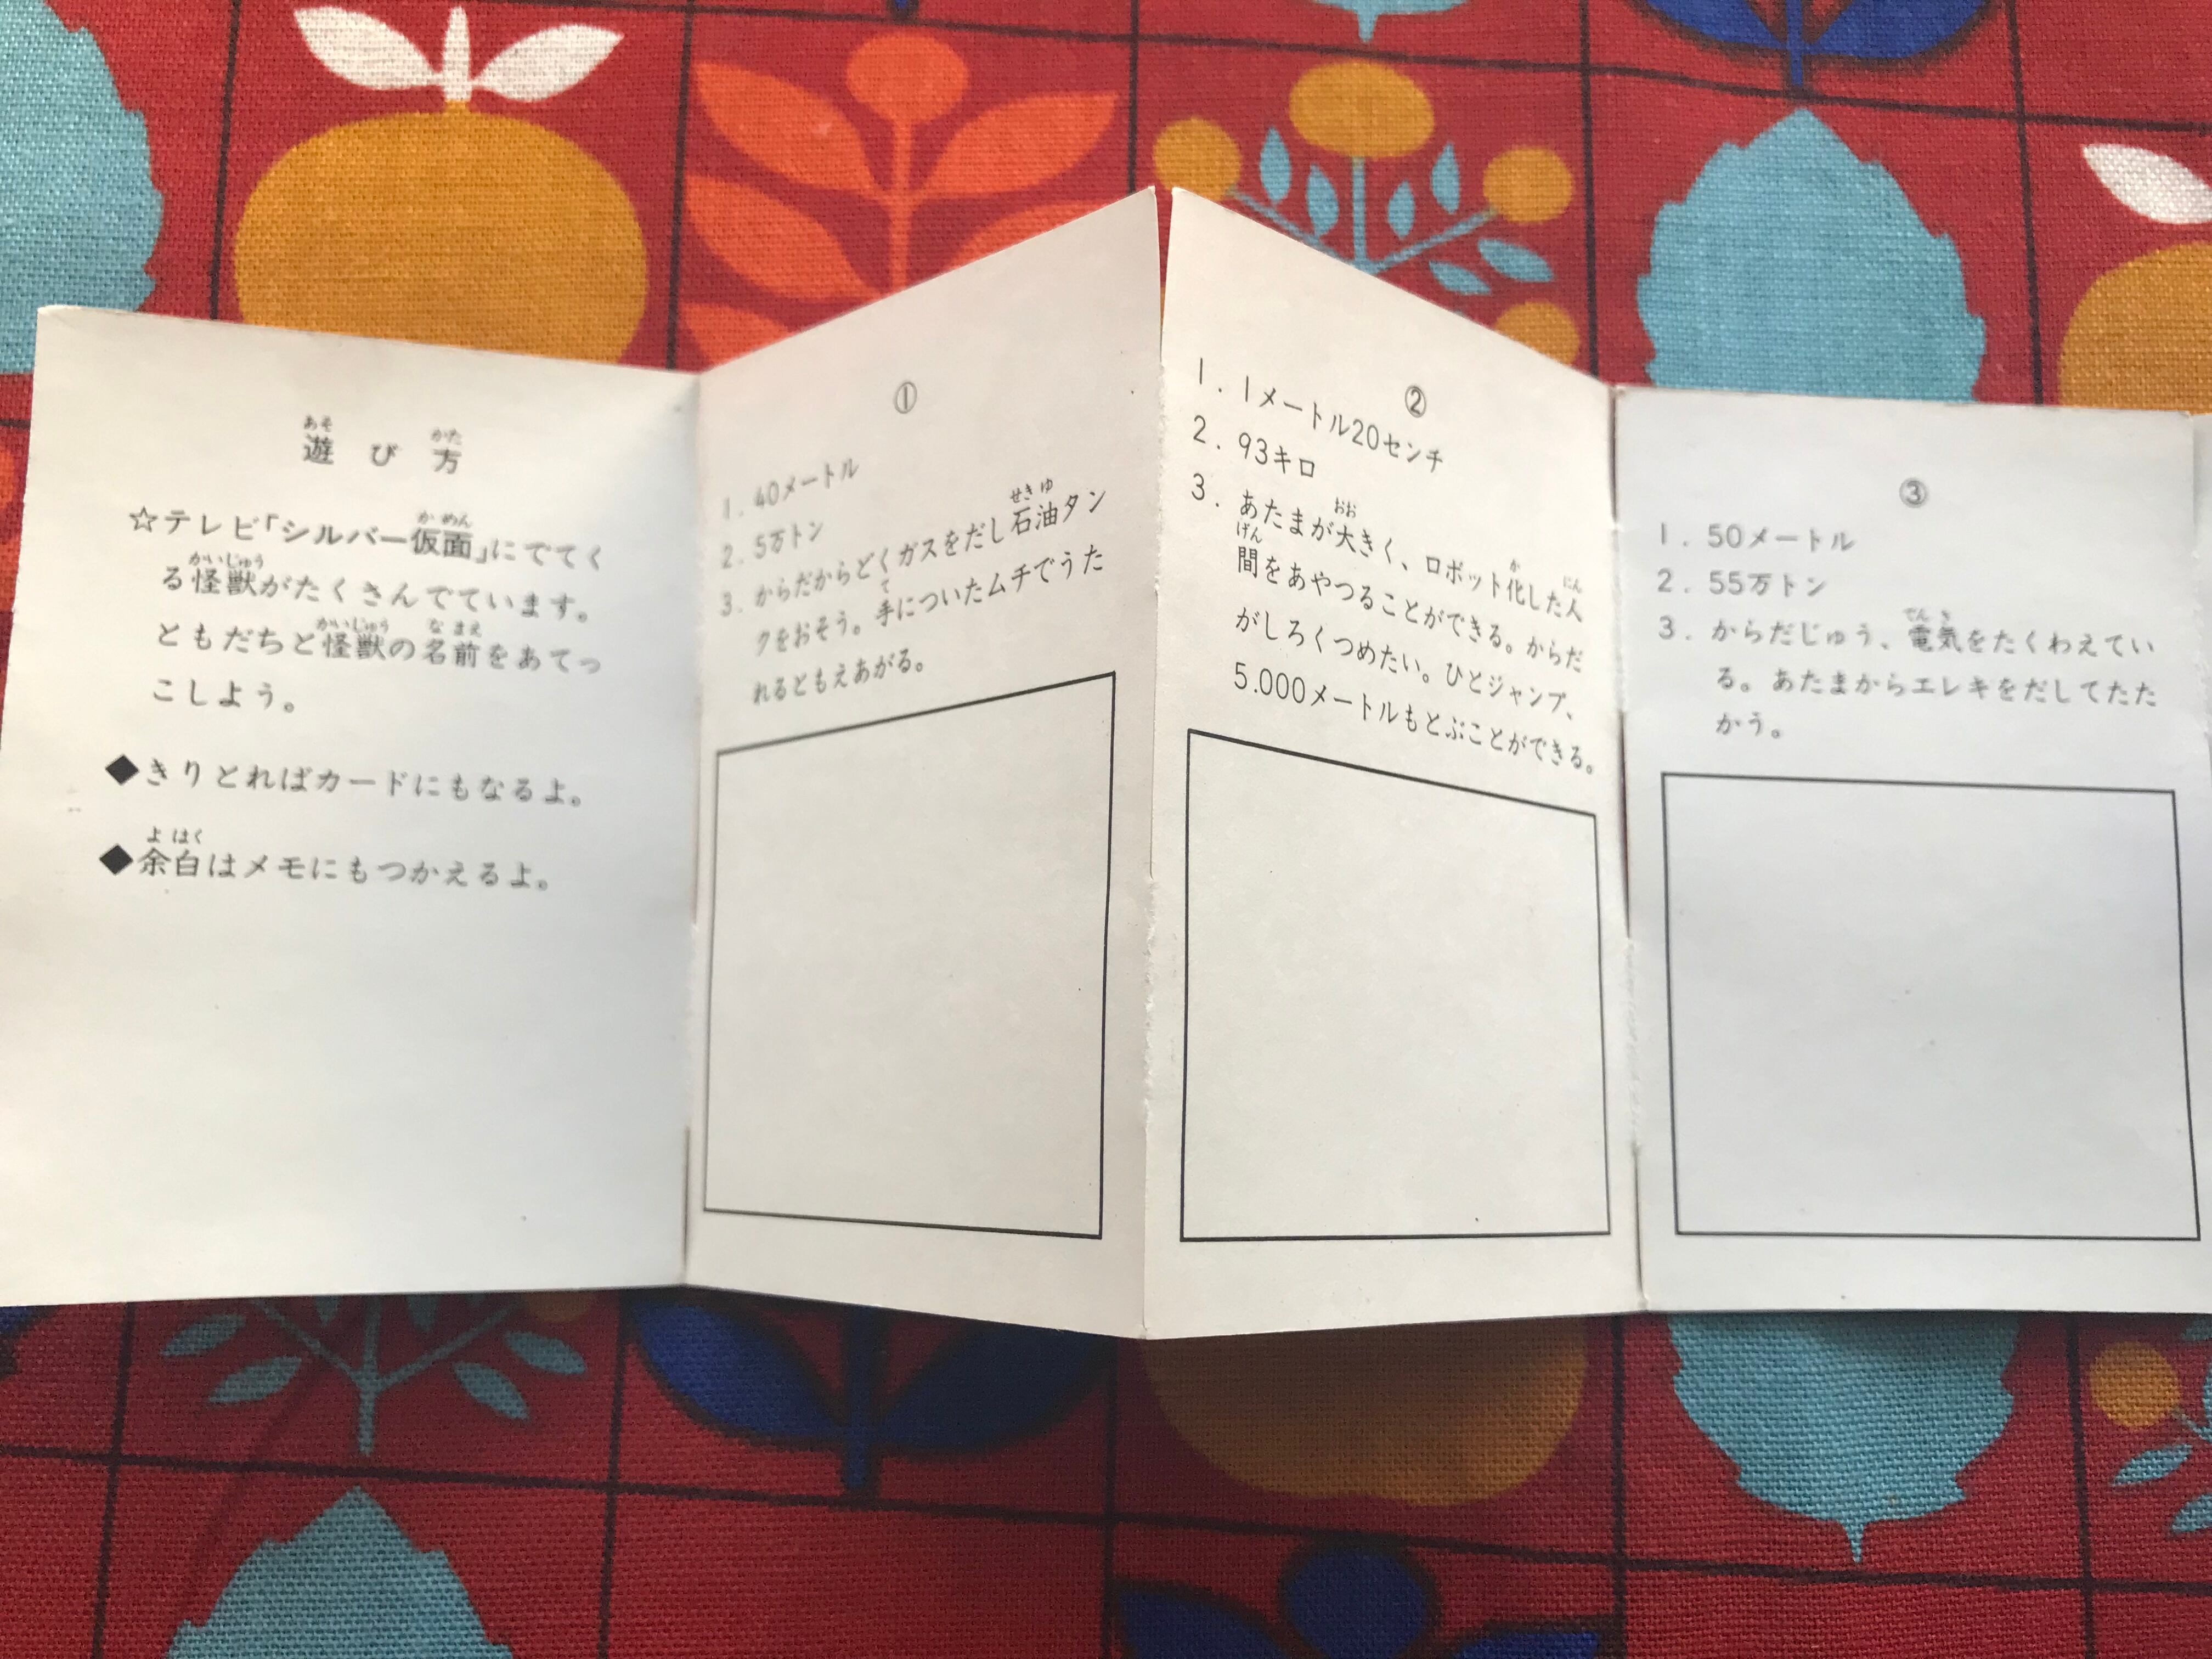 遊び方
☆テレビ「シルバー仮面」にでてく
る怪獣がたくさんでています。
ともだちと怪獣の名前をあてっ
こしよう。
◆きりとればカードにもなるよ。
◆余白はメモにもつかえるよ。
①
1. 40メートル
2. 5万トン
3. からだからどくガスをだし石油タン
クをおそう。手についたムチでうた
れるともえあがる。
②
1. 1メートル20センチ
2. 93キロ
3. あたまが大きく、ロボット化した人
間をあやつることができる。からだ
がしろくつめたい。ひとジャンプ、
5.000メートルもとぶことができる。
③
1. 50メートル
2. 55万トン
3. からだじゅう、電気をたくわえてい
る。あたまからエレキをだしてたた
かう。